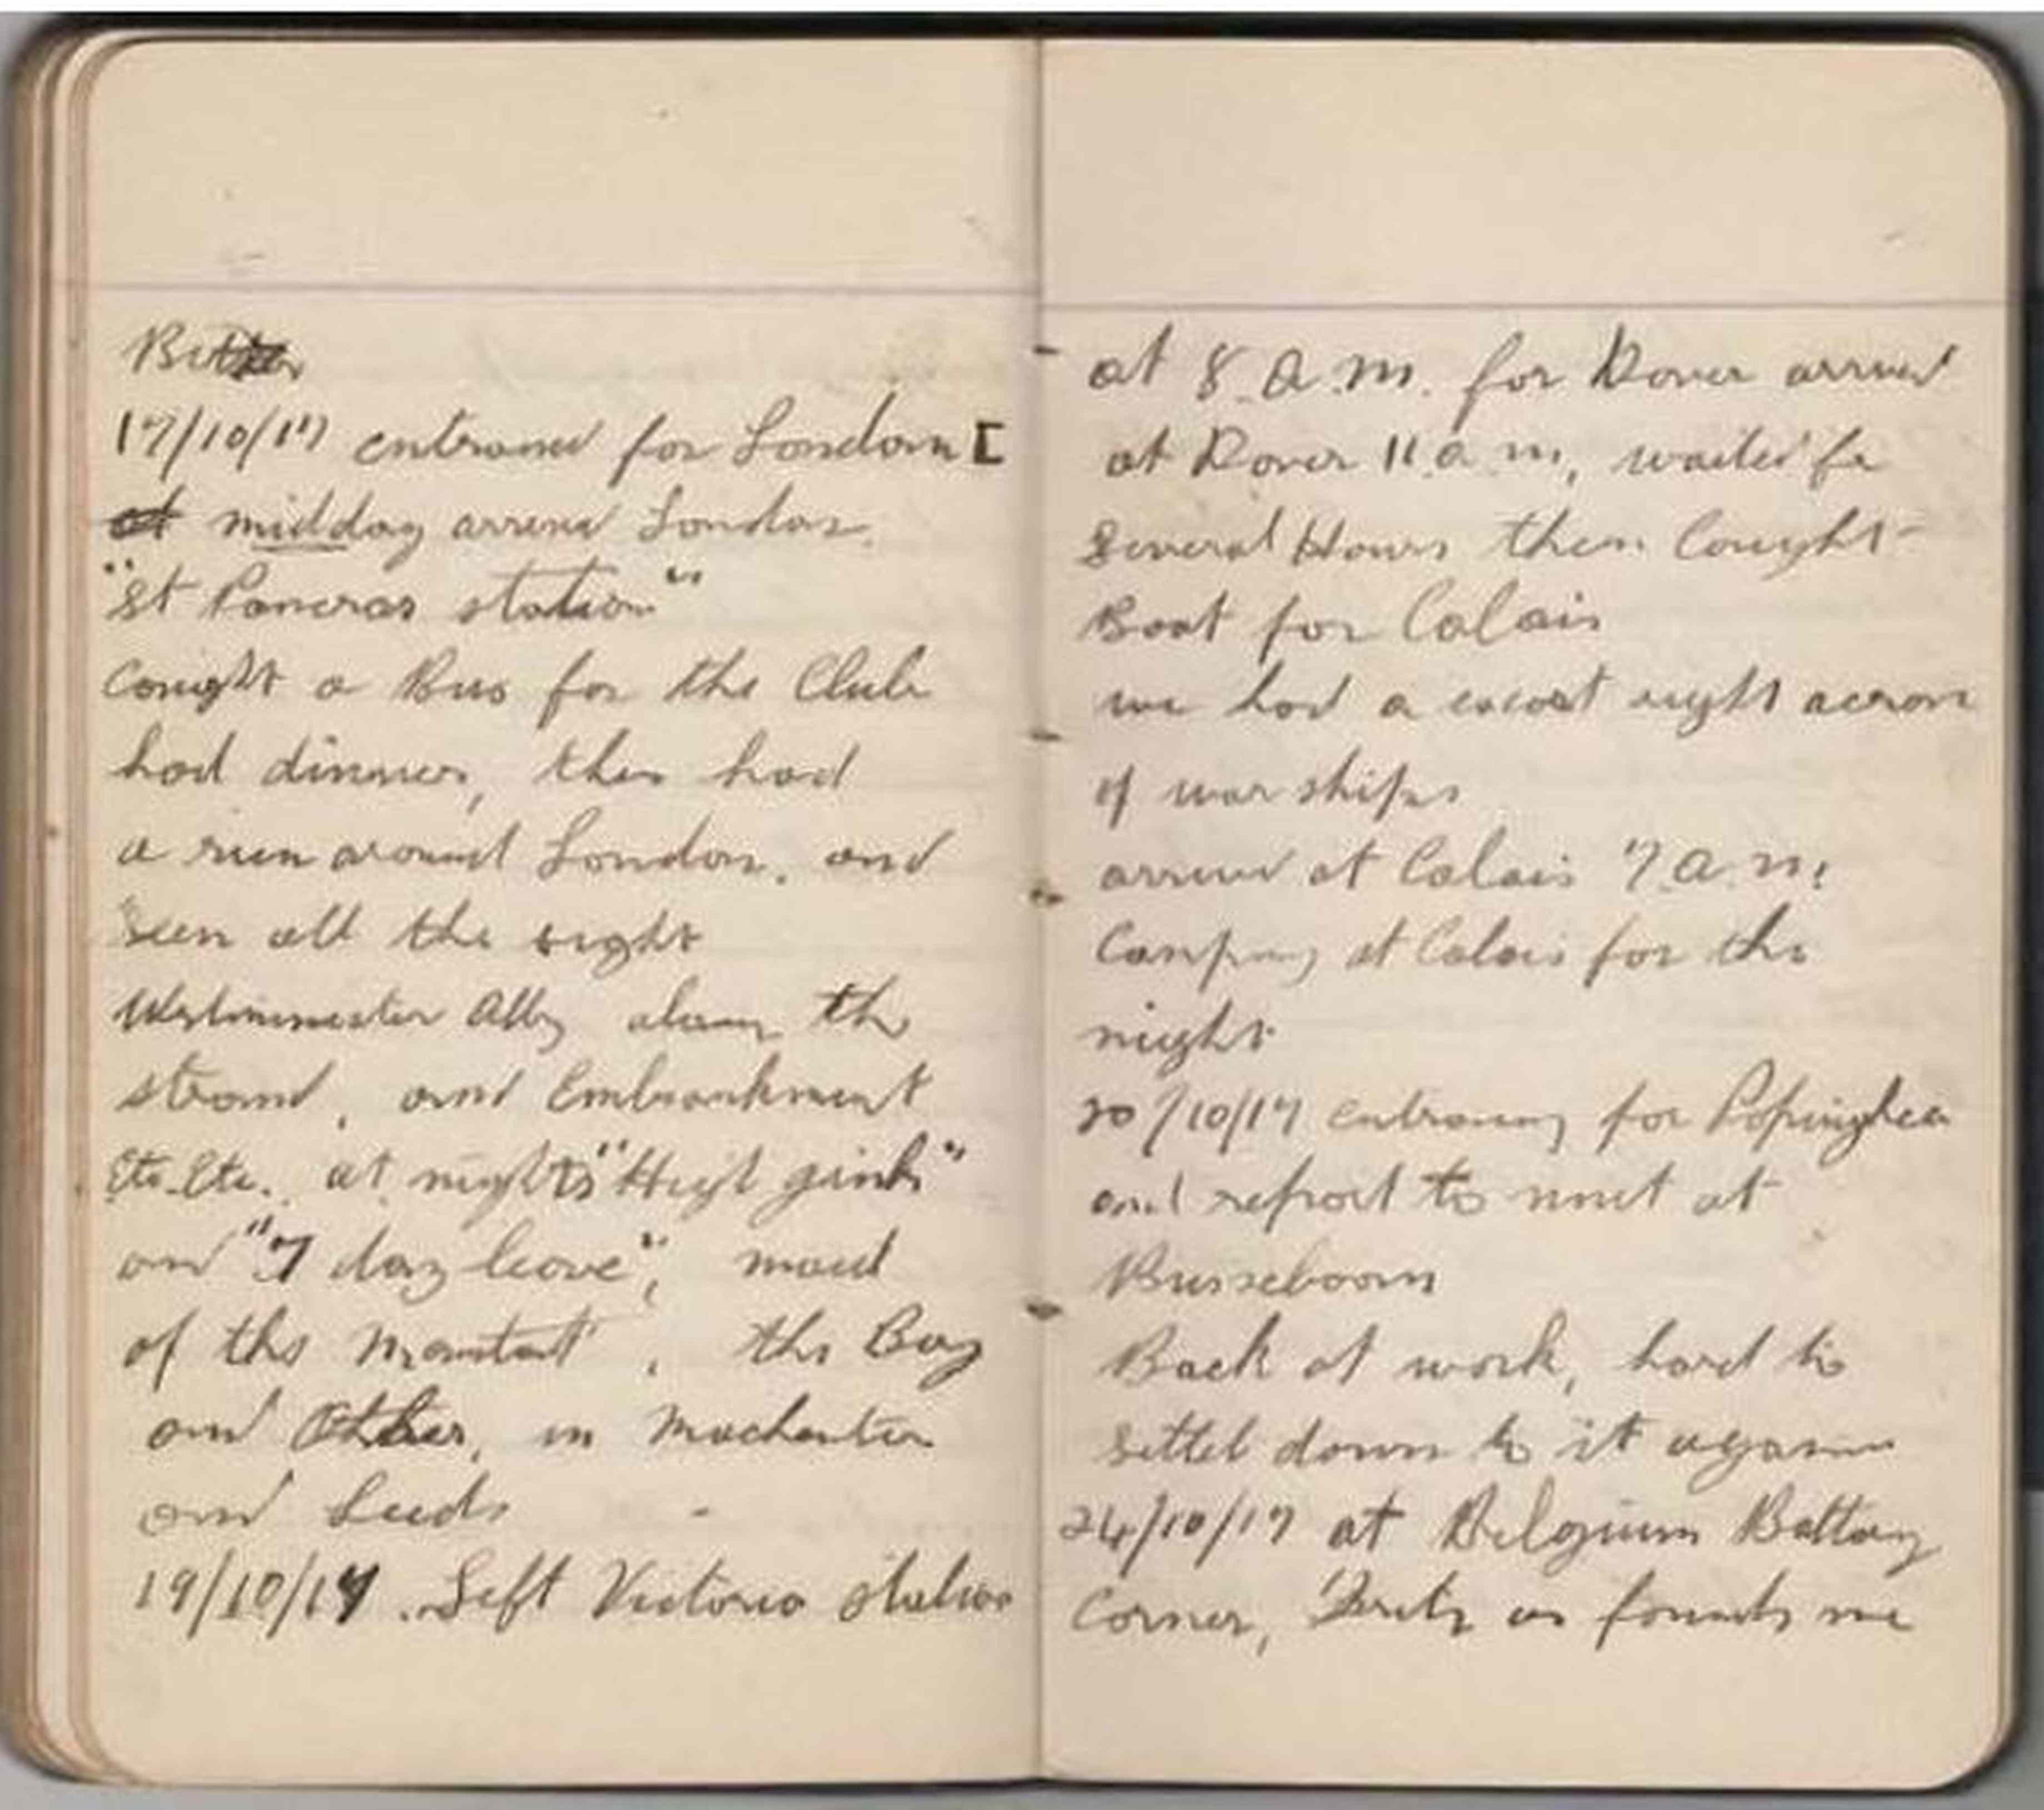 17/10/17 entrained for London [
at midday arrived London.
"St Pancras station"
Cought a Bus for the Club
had dinner, then had
a run around London, and
seen all the sight
Westminester Abby along the
strand, and Embrankment
Etc. Etc. at nights "High jinks"
and "7 day leave", maid
of the Mountant, the Boy
and Other, in Machester
and Leeds
19/10/17. Left Victoria station
at 8 a.m. for Dover arrived
at Dover 11 a m, waited for
Several Hours then Cought
Boat for Calais
we had a escort right across
of war ships
arrived at Calais 7 a.m.
Camping at Calais for the
night
20/10/17 entraining for Popinghea
and report to unit at
Busseboom
Back at work, hard to
settel down to it again
24/10/17 at Belgium Battary
Corner, Fritz as founds me